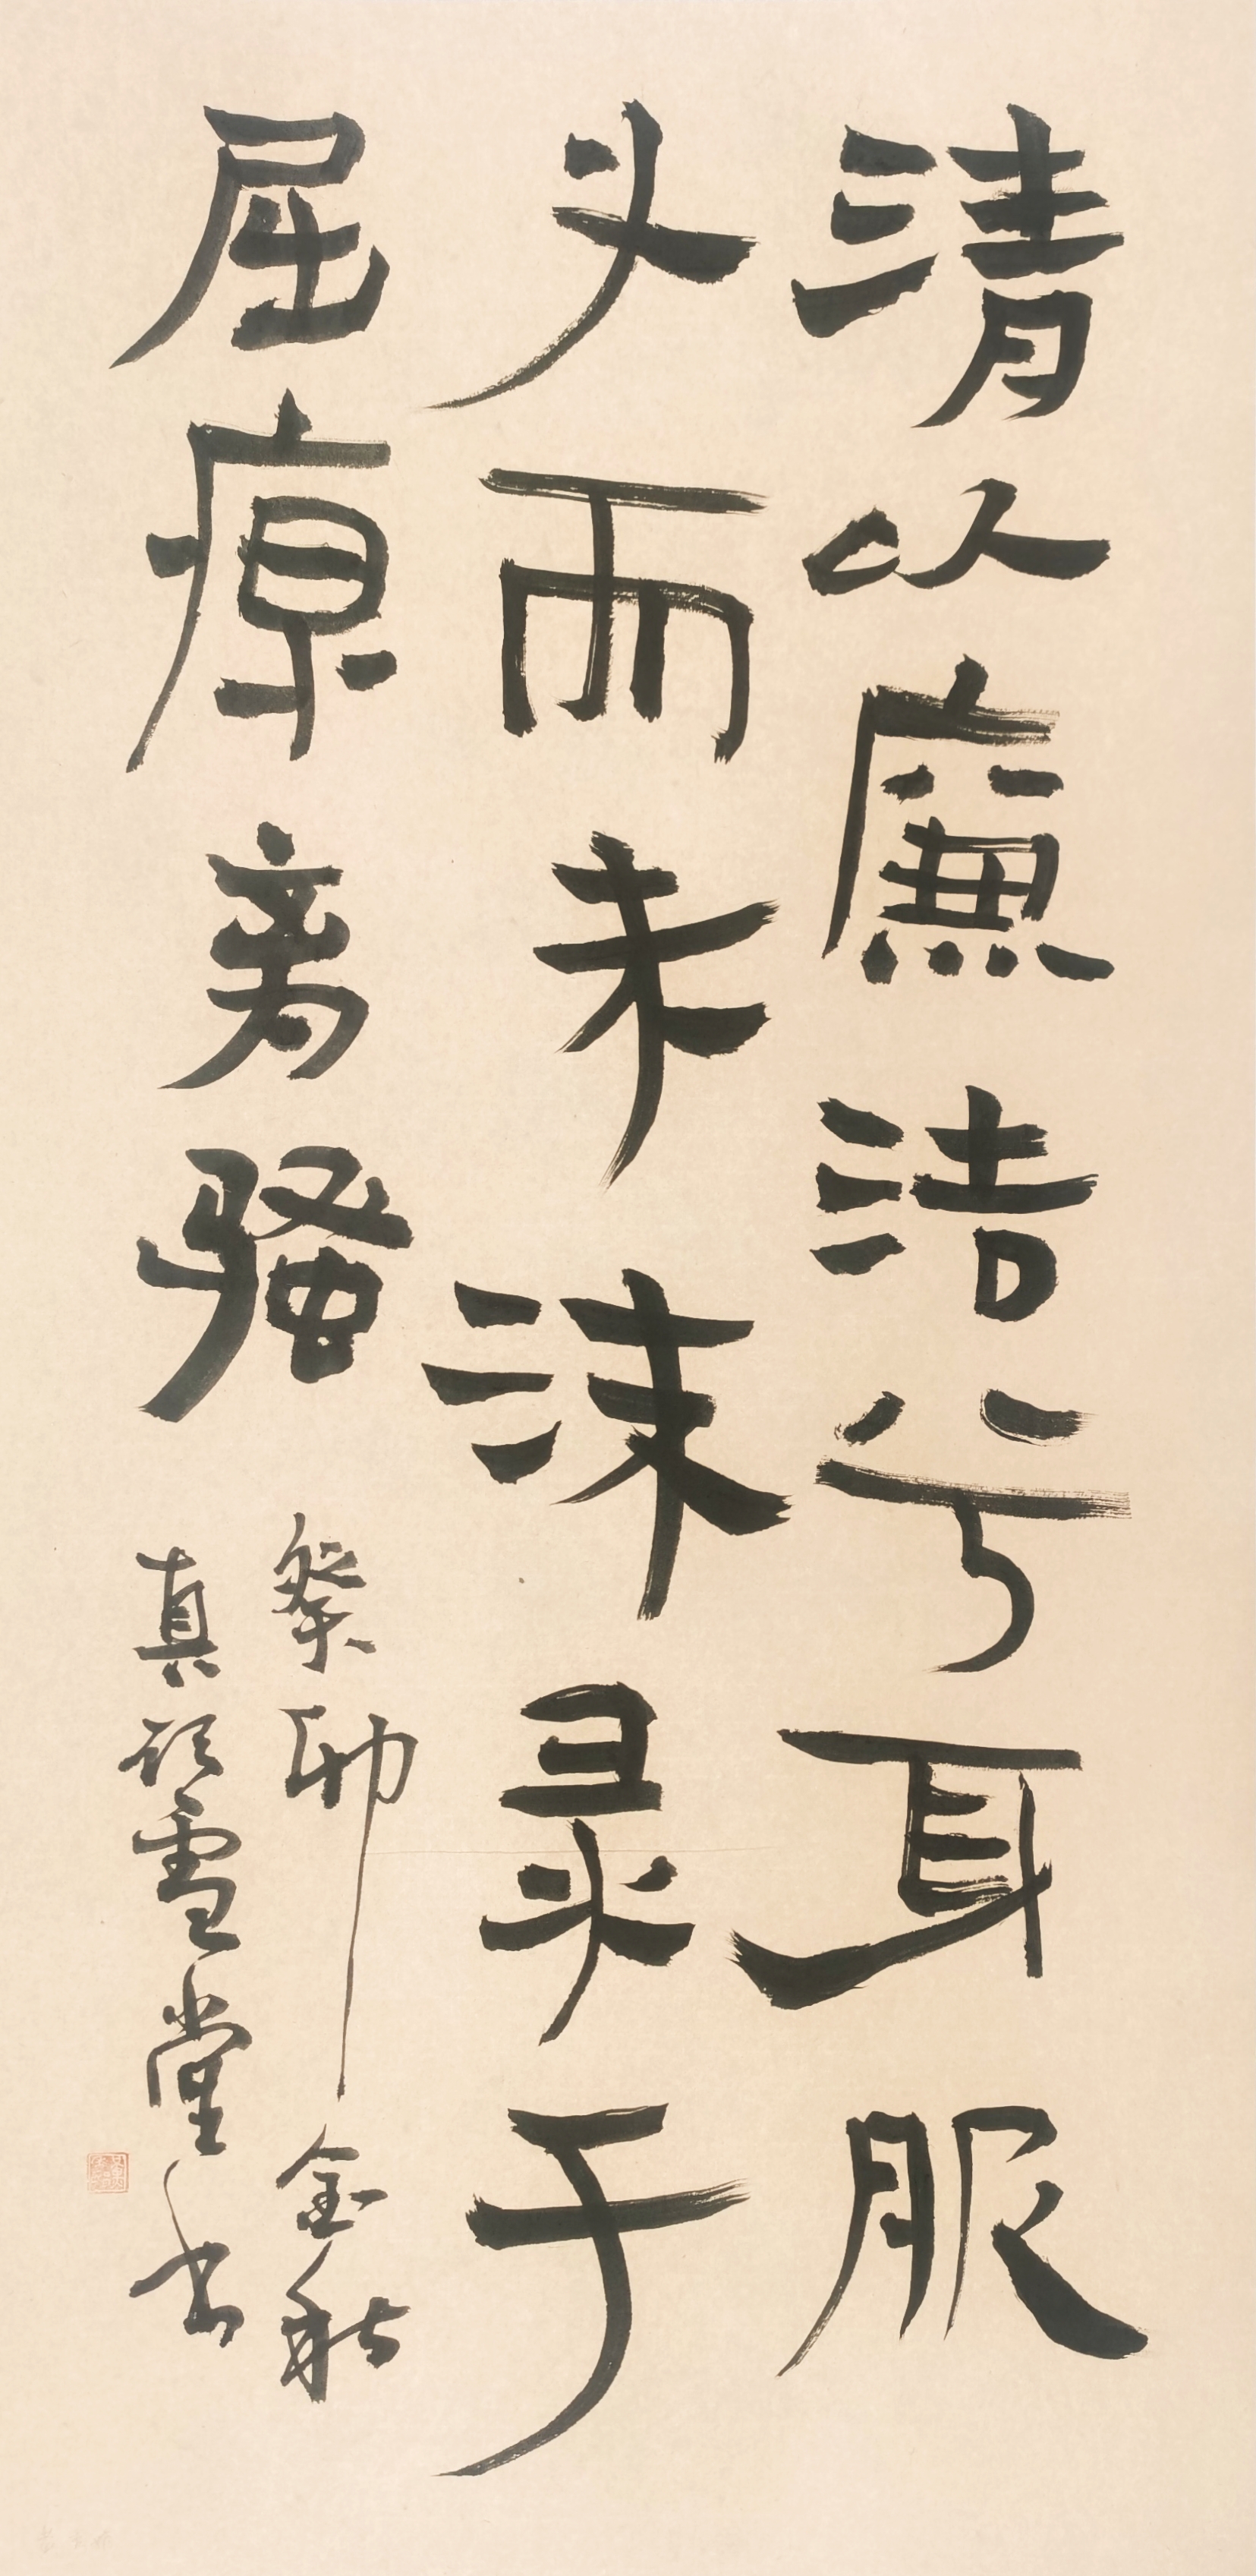 清以廉洁兮身服
义而未沫录于
屈原离骚
癸卯金秋
真雪堂书